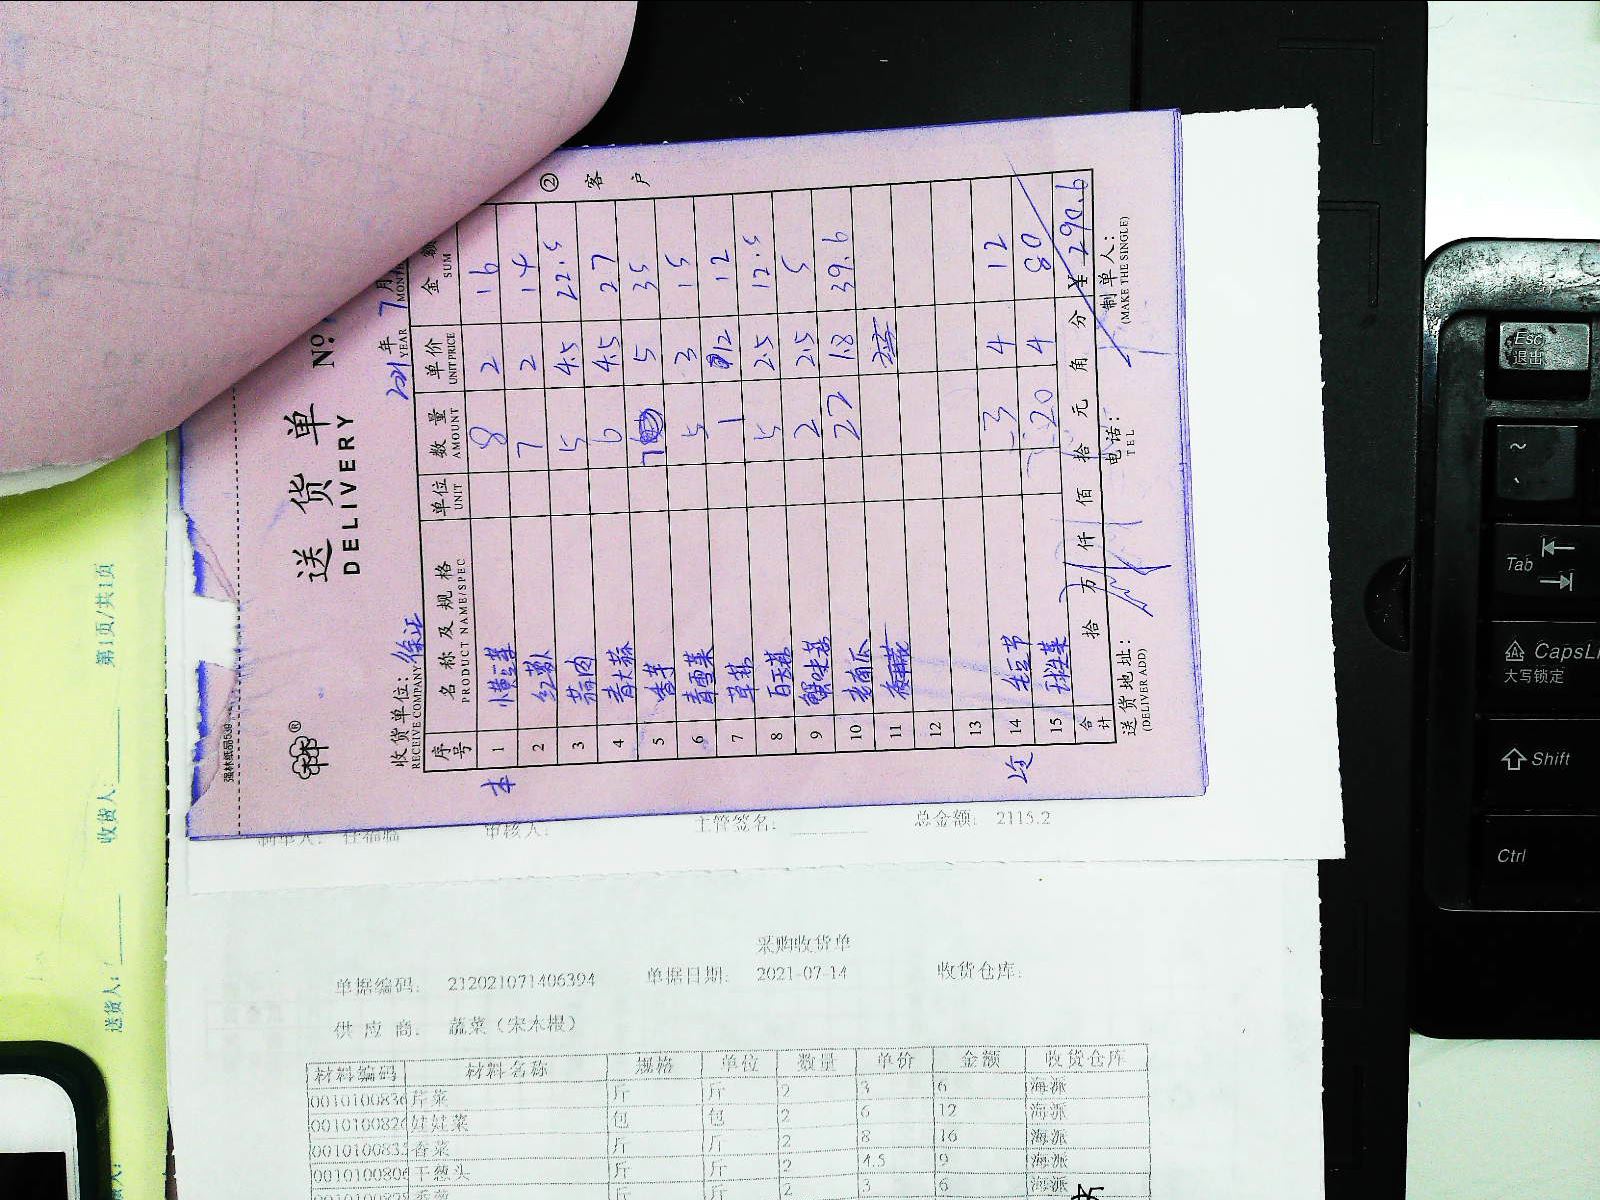 强林纸品539
送货单 №
DELIVERY
2021年 7月
YEAR MONTH
收货单位：徐汇
RECEIVE COMPANY
② 客户
序号 名称及规格 单位 数量 单价 金额
PRODUCT NAME/SPEC UNIT AMOUNT UNIT PRICE SUM
1 8 2 16
2 7 2 14
3 5 4.5 22.5
4 青大蒜 6 4.5 27
5 香芋 7 5 35
6 5 3 15
7 草菇 1 12 12
8 5 2.5 12.5
9 蟹味菇 2 2.5 5
10 老南瓜 22 1.8 39.6
11
12
13
14 毛豆节 3 4 12
15 20 4 80
合计 拾 万 仟 佰 拾 元 角 分 ¥ 290.6
送货地址： 电话： 制单人：
(DELIVER ADD) TEL (MAKE THE SINGLE)
第1页/共1页
收货人：
送货人：
制单人： 审核人： 主管签名： 总金额： 2115.2
采购收货单
单据编码： 212021071406394 单据日期： 2021-07-14 收货仓库：
供应商： 蔬菜（宋木根）
材料编码 材料名称 规格 单位 数量 单价 金额 收货仓库
0010100836 芹菜 斤 斤 2 3 6 海派
001010082 娃娃菜 包 包 2 6 12 海派
001010083 香菜 斤 斤 2 8 16 海派
001010080 干葱头 斤 斤 2 4.5 9 海派
斤 斤 2 3 6 海派
Esc
退出
~
`
Tab
CapsL
大写锁定
Shift
Ctrl